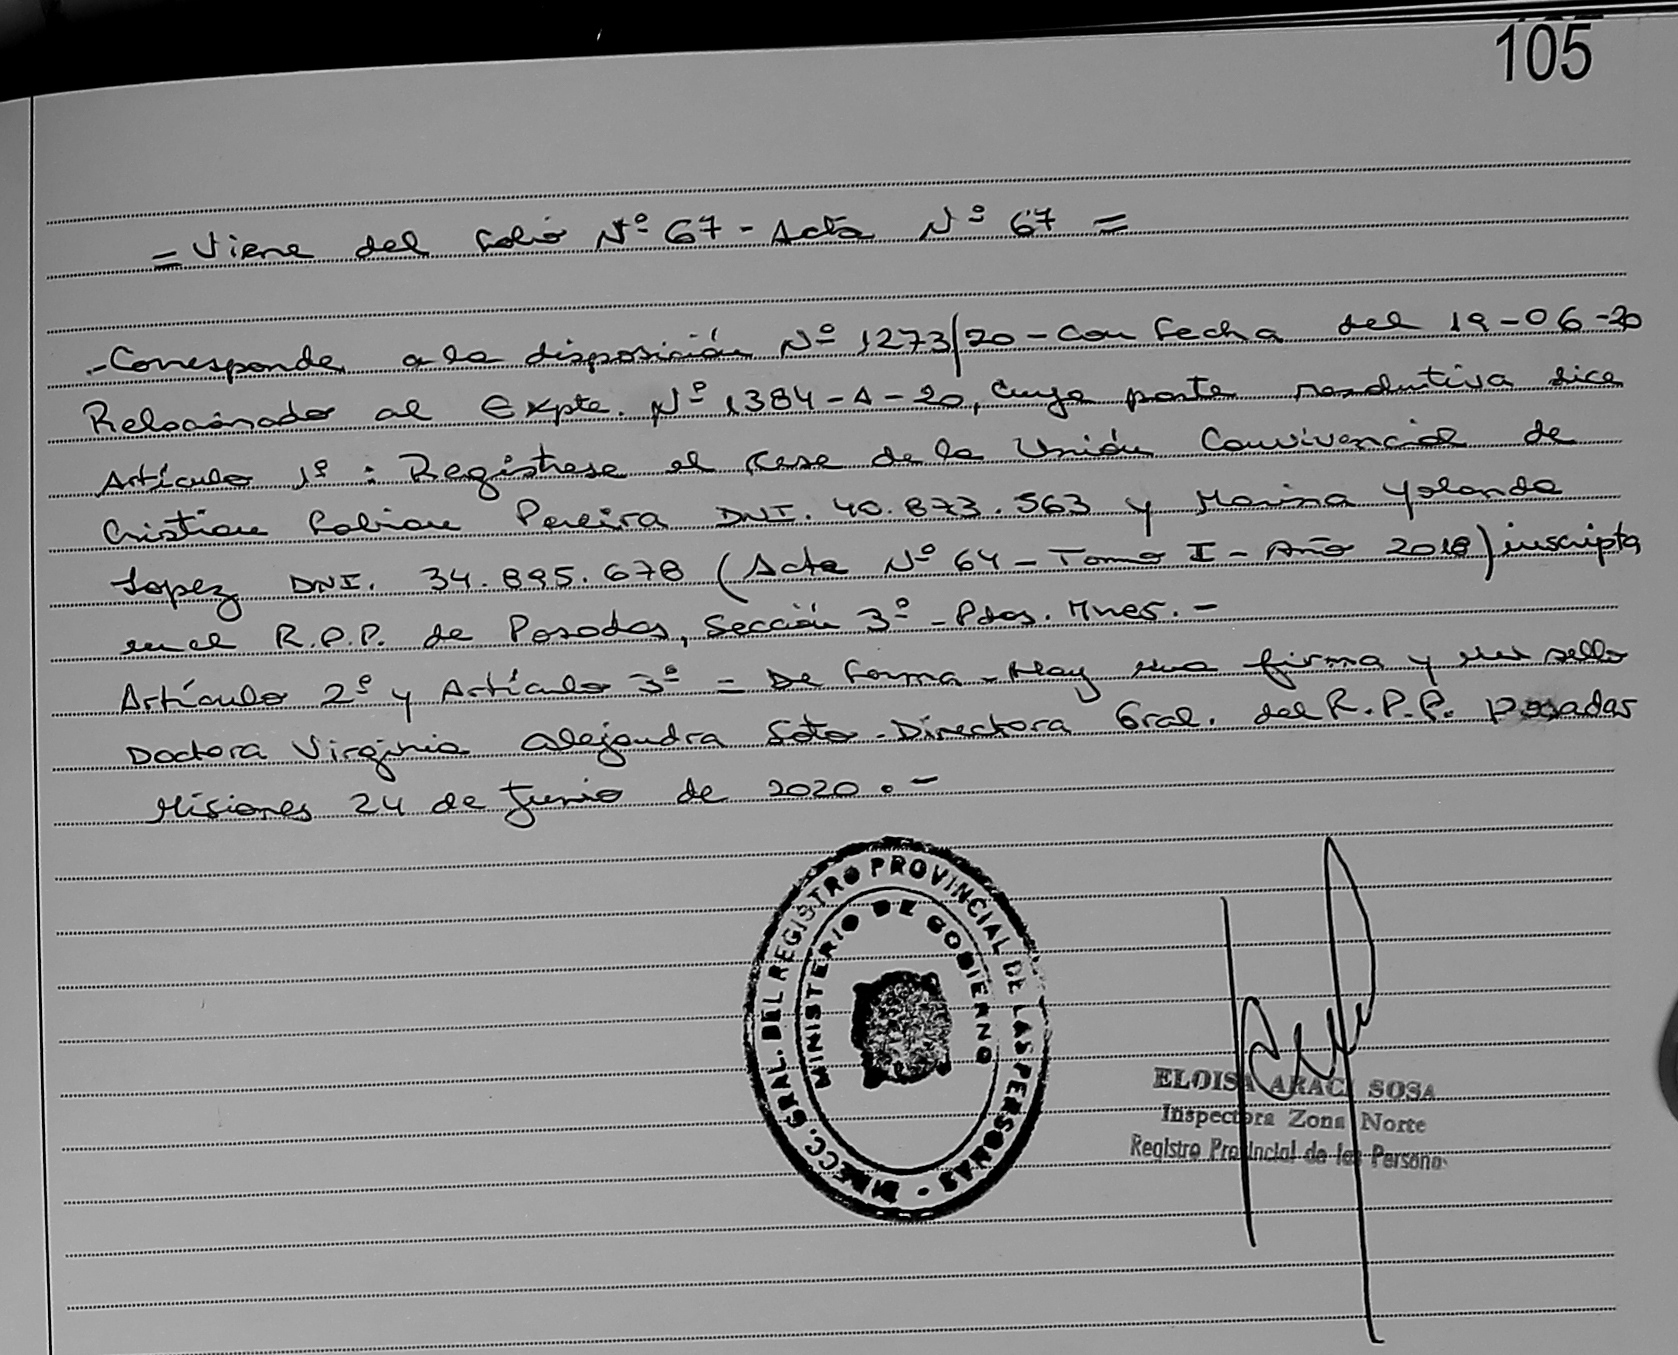 105
= Viene del folio Nº 67 - Acta Nº 67 =
.-Corresponde a la disposición Nº 1273/20 - Con fecha del 19-06-20
Relacionado al Expte. Nº 1384-A-20, cuya parte resolutiva dice
Artículo 1º : Regístrese el cese de la Unión Convivencial de
Cristian Fabian Pereira DNI. 40.873.563 y Marina Yolanda
Lopez DNI. 34.895.678 (Acta Nº 64 - Tomo I - Año 2018) inscripta
en el R.P.P. de Posadas, Sección 3º - Pdas. Mnes. -
Artículo 2º y Artículo 3º = De forma - Hay una firma y un sello
Doctora Virginia Alejandra Soto - Directora Gral. del R.P.P. Posadas
Misiones 24 de Junio de 2020. -
DIRECC. GRAL. DEL REGISTRO PROVINCIAL DE LAS PERSONAS -
MINISTERIO DE GOBIERNO
ELOISA ARACI SOSA
Inspectora Zona Norte
Registro Provincial de las Personas